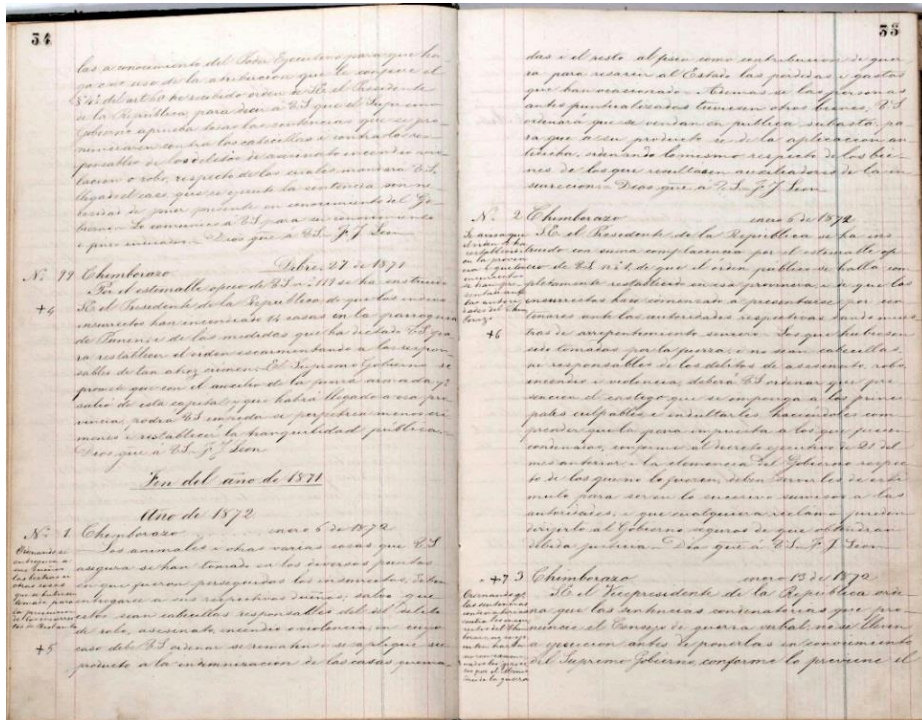 34
las a conocimiento del Poder Ejecutivo para que ha-
ga o no uso de la atribucion que le confiere el
§ 4º del art 60 he recibido orden de S.E. el Presidente
de la República para decir á US que el Supremo
Gobierno aprueba todas las sentencias que se pro-
nunciaren contra los cabecillas i contra los res-
ponsables de los delitos de asesinato incendio vio-
lacion o robo, respecto de los cuales mandará US,
llegado el caso, que se ejecute la sentencia sin ne-
cesidad de poner en conocimiento del Go-
bierno. Lo comunico á US, para su conocimiento
i Dios gue á US. F. J. Leon
Nº 99 Chimborazo Dibre. 27 de 1871
Por el estimable oficio de US nº 113 se ha instruido
S.E. el Presidente de la República de que los indios
insurrectos han incendiado 14 casas en la parroquia
de Punin i de las medidas que ha dictado US pa-
ra restablecer el orden escarmentando a los respon-
sables de tan atroz crimen. El Supremo Gobierno se
promete que con el auxilio de la fuerza armada q.
salió de esta capital y que habrá llegado a esa pro-
vincia, podrá US impedir se perpetren menos crí-
menes i restablecer la tranquilidad pública.
Dios gue á US. F. J. Leon
+4
Fin del año de 1871
Año de 1872
Nº 1 Chimborazo enero 6 de 1872
Los animales i otras varias cosas que US
asegura se han tomado en los diversos puntos
en que fueron perseguidos los insurrectos, deben
entregarse a sus respectivos dueños; salvo que
estos sean cabecillas responsables del delito
de robo, asesinato incendio o violencia, en cuyo
caso debe US ordenar se rematen i se aplique su
producto a la indemneracion de las casas quema-
+5
33
das i el resto al fisco como contribucion de gue-
rra para resarcir al Estado las pérdidas i gastos
que han ocasionado. Ademas si las personas
antes puntualizadas tuviesen otros bienes, US
ordenará que se vendan en pública subasta, pa-
ra que a su producto se dé la aplicacion an-
tedicha, ordenando lo mismo respecto de los bie-
nes de los que resultasen auxiliadores de la in-
sureccion. Dios gue á US. F. J. Leon
Nº 2 Chimborazo enero 6 de 1872
S.E. el Presidente de la República se ha ins-
truido con suma complacencia por el estimable ofi-
cio de US nº 1, de que el orden público se halla com-
pletamente restablecido en esa provincia i a que los
insurrectos han comenzado a presentarse por cen-
tenares ante las autoridades respectivas dando mues-
tras de arrepentimiento sincero. Los que hubiesen
sido tomados por la fuerza, i no sean cabecillas,
ni responsables de los delitos de asesinato, robo,
incendio i violencia, deberá US ordenar que pre-
sencien el castigo que se imponga a los princi-
pales culpables e insultarles, haciendoles com-
prender que la pena impuesta a los que fuesen
condenados, conforme al decreto ejecutivo de 21 del
mes anterior i la clemencia del Gobierno respec-
to de los que no lo fueren, deben servirles de estí-
mulo para ser en lo sucesivo sumisos a las
autoridades, i que cualquiera reclamo pueden
dirijirlo al Gobierno seguros de que obtendran
debida justicia. Dios gue á US. F. J. Leon
+6
+7 3 Chimborazo enero 13 de 1872
S.E. el Vicepresidente de la República orde-
na que las sentencias condenatorias que pro-
nuncie el Consejo de guerra verbal, no se lleven
a ejecucion antes de ponerlas en conocimiento
del Supremo Gobierno, conforme lo previene el